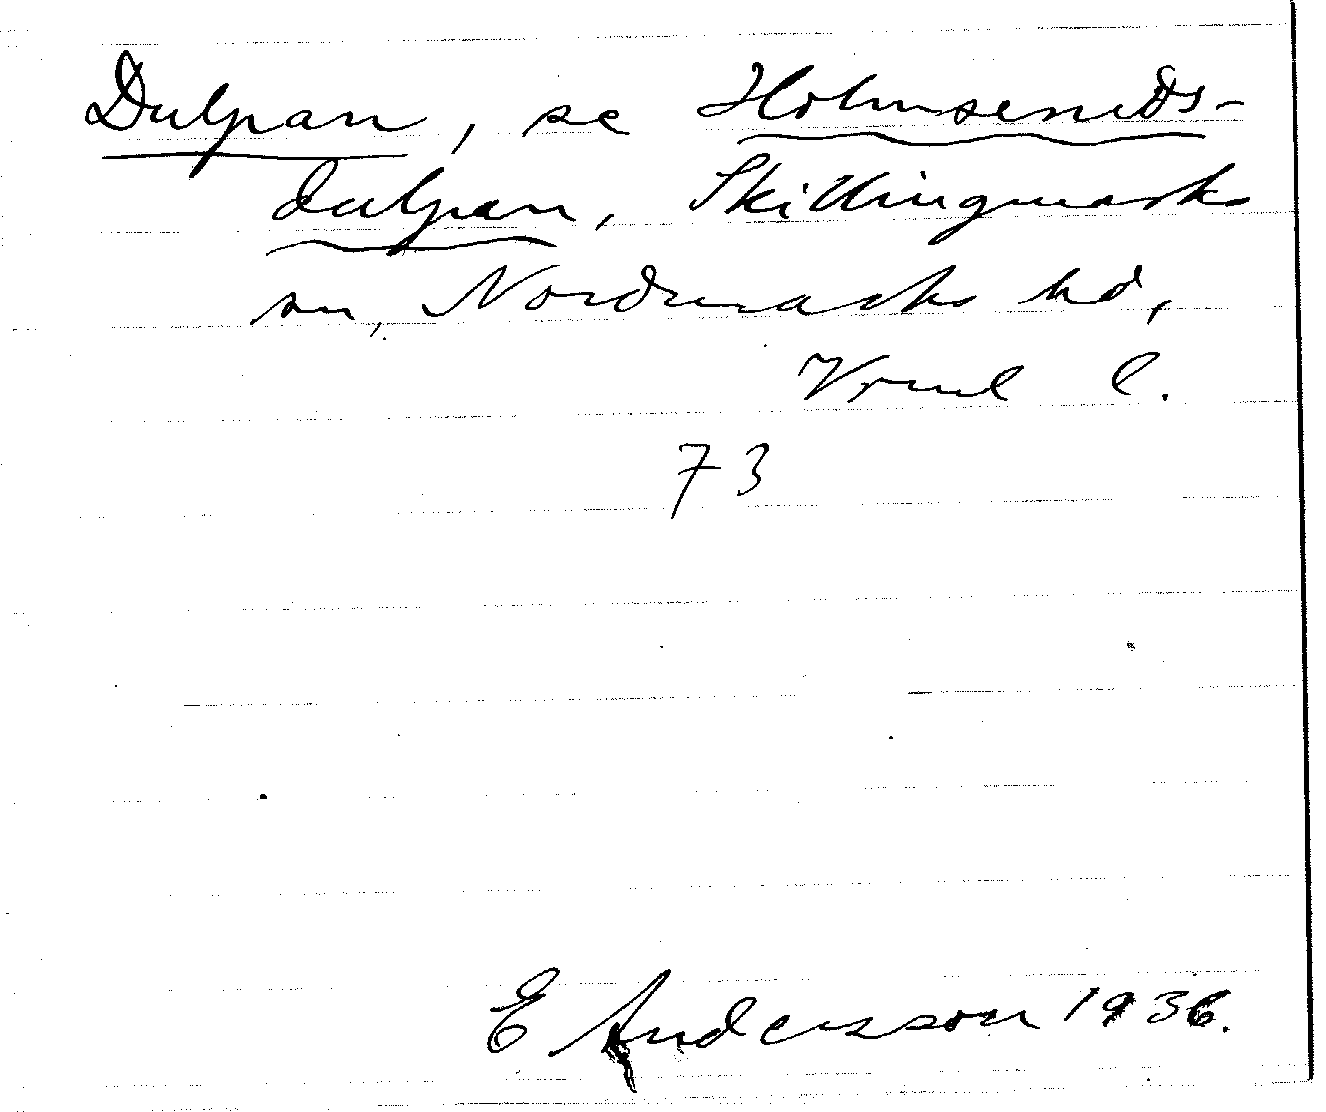 Dulpan, se Holmseruds-
dulpan, Skillingmarks
sn, Nordmarks hd,
Vrml l.
73
E Andersson 1936.